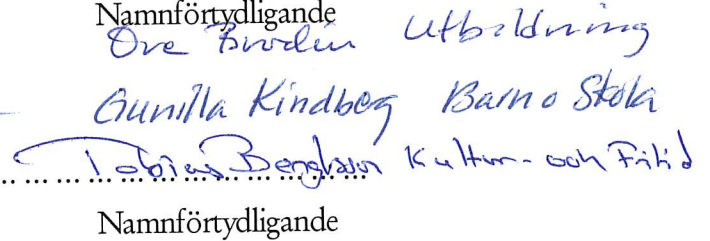 Namnförtydligande
Ove Brodin Utbildning
Gunilla Kindberg Barn o Skola
Tobias Bengtsson Kultur- och Fritid
Namnförtydligande